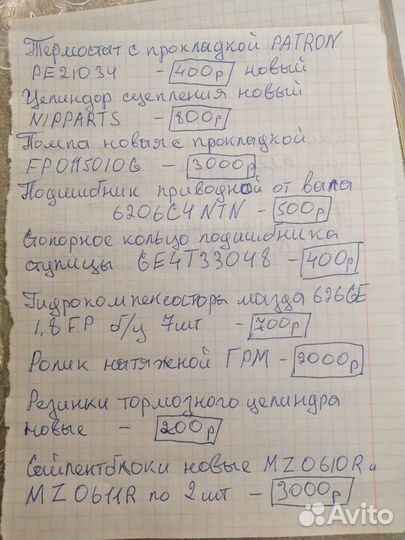 Термостат с прокладкой PATRON
PE21034 - 400р новый
Целиндор сцепления новый
NIPPARTS - 800р
Помпа новая с прокладкой
FP0115010G - 3000р
Подшибник приводной от вала
6206C4 NTN - 500р
Стопорное кольцо подшибника
ступицы GE4T33048 - 400р
Гидрокомпенсаторы мазда 626GE
1,8 FP б/у 7шт - 700р
Ролик натяжной ГРМ - 2000р
Резинки тормозного целиндра
новые - 200р
Сайлентблоки новые MZ0610R и
MZ0611R по 2 шт - 3000р
Avito